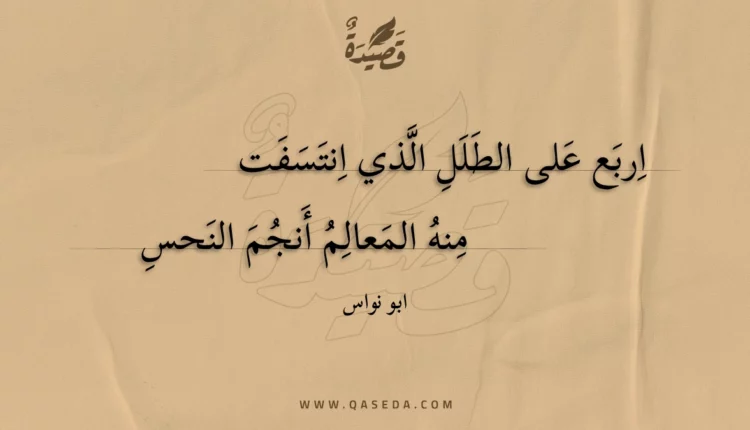 قَصِيدَةٌ
اِربَع عَلى الطَلَلِ الَّذي اِنتَسَفَت
مِنهُ المَعالِمُ أَنجُمَ النَحسِ
ابو نواس
WWW.QASEDA.COM